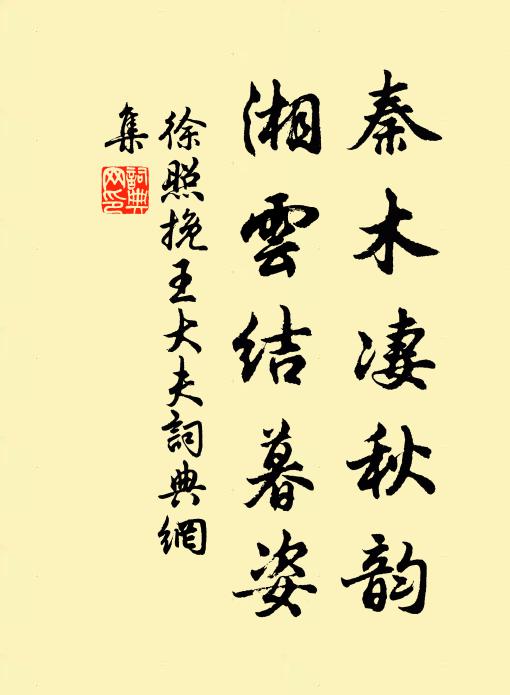 秦木凄秋韵
湘雲结暮姿
徐照挽王大夫詞典網
集
詞典网印